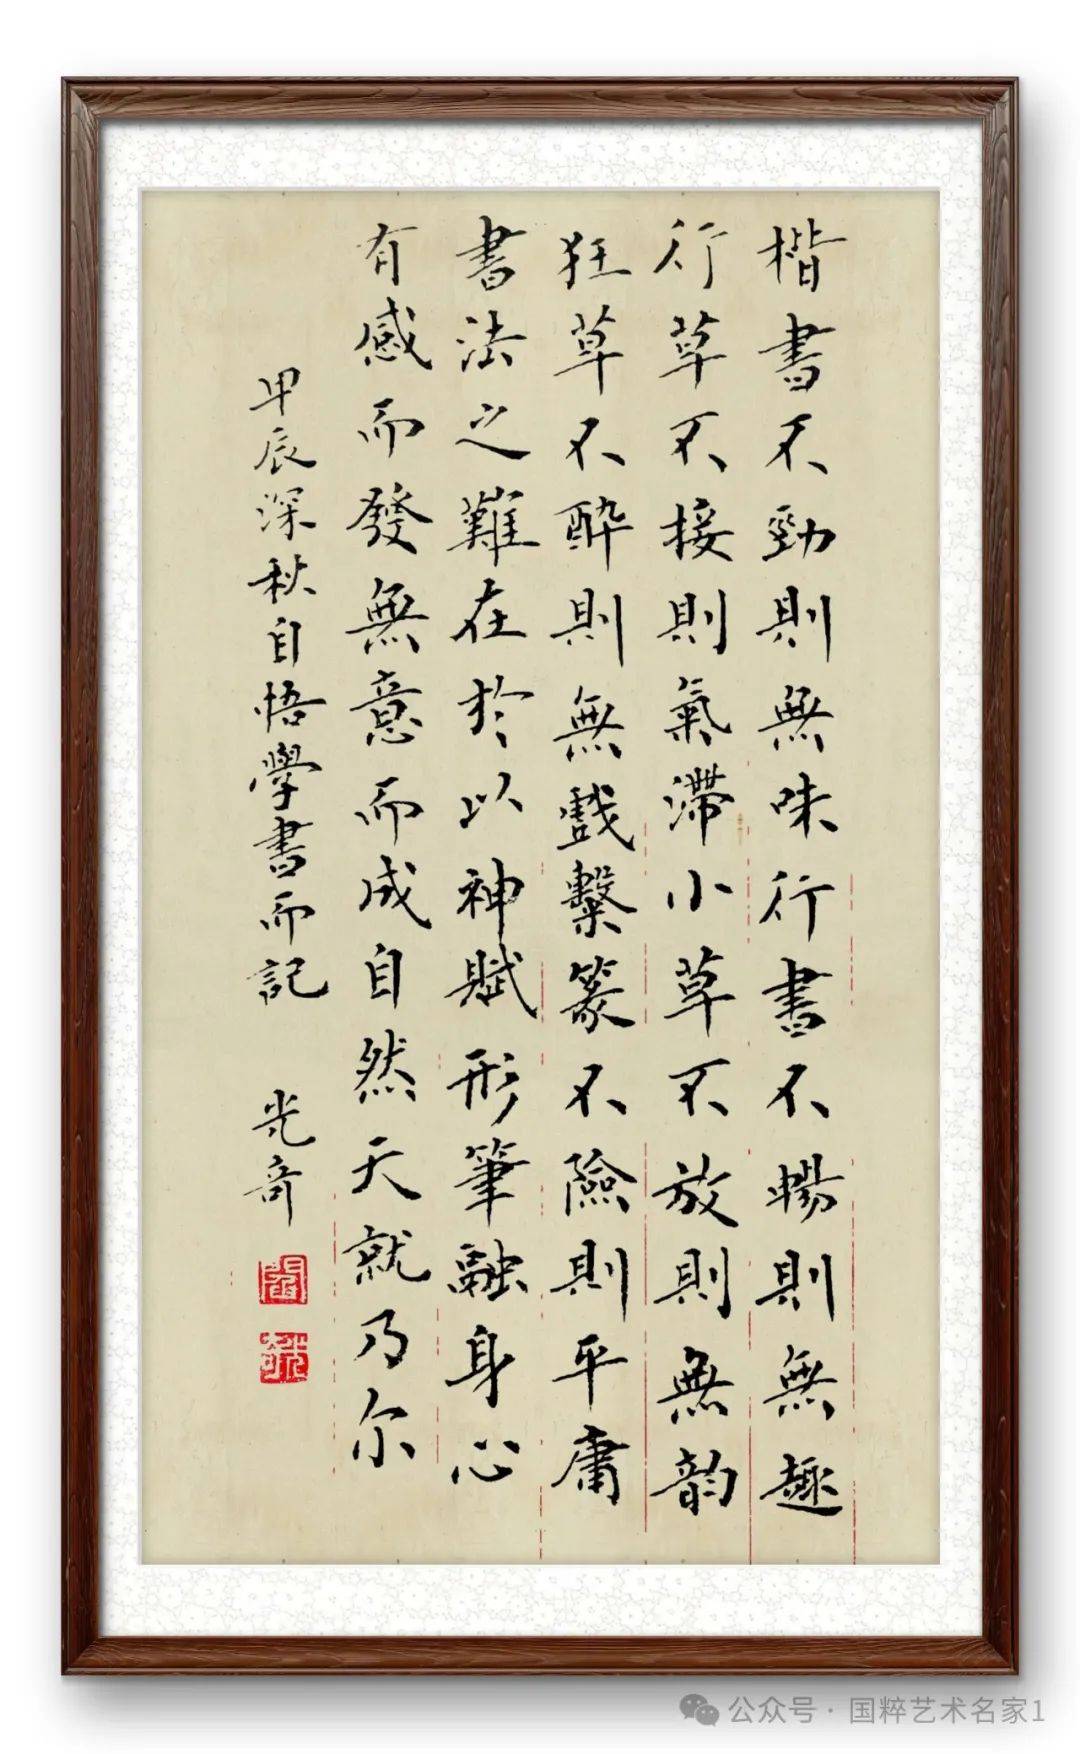 楷書不勁則無味行書不暢則無趣
行草不接則氣滯小草不放則無韵
狂草不醉則無戲繫篆不險則平庸
書法之難在於以神賦形筆融身心
有感而發無意而成自然天就乃尔
甲辰深秋自悟學書而記 光奇
閻
光奇
公众号·国粹艺术名家1